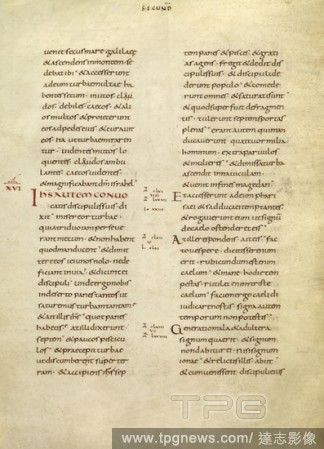 SECUND
uenit secus mare galilaeę
& ascendens in montem se
debat ibi · & accesserunt
ad eum turbae multae ha
bentes secum · mutos · clau
dos · debiles · caecos · & ali
os multos · & proiecerunt
eos ad pedes eius · & curauit
eos · ita ut turbae miraren
tur · uidentes mutos lo
quentes · claudos ambu
lantes · caecos uidentes
& magnificabant dm israhel
XVI
Ihs autem conuo
catis discipulis suis di
xit · misereor turbae ·
quia triduo iam perseue
rant mecum · & non habent
quod manducent · & dimit
tere eos ieiunos nolo · ne de
ficiant in uia · & dicunt ei
discipuli · unde ergo nobis
in deserto panes tantos ut
saturemus turbam tantam
& ait illis ihs · quot panes
habetis · at illi dixerunt
septem · & paucos piscicu
los · & praecepit turbae
ut discumberent super ter
ram · & accipiens ihs sep
tem panes · & pisces · & grati
as agens · fregit & dedit dis
cipulis suis · & discipuli de
derunt populo · & comede
runt omnes · & saturati sunt
& quod superfuit de fragmen
tis · tulerunt septem sportas
plenas · erant autem qui man
ducauerunt quattuor milia
hominum · extra paruulos
& mulieres · & dimissa turba
ascendit in nauiculam
& uenit in fines magedan
Et accesserunt ad eum phari
saei & sadducaei temptantes
& rogauerunt eum ut signum
de caelo ostenderet eis
At ille respondens · ait eis · fac
to uespere · dicitis serenum
erit · rubicundum est enim
caelum · & mane · hodie tem
pestas · rutilat enim triste
caelum · faciem ergo caeli di
iudicare nostis · signa autem
temporum non potestis
Generatio mala & adultera
signum quaerit · & signum
non dabitur ei · nisi signum
ionae · & relictis illis · abiit
& cum uenissent discipuli eius
TPG
www.tpgnews.com / 達志影像